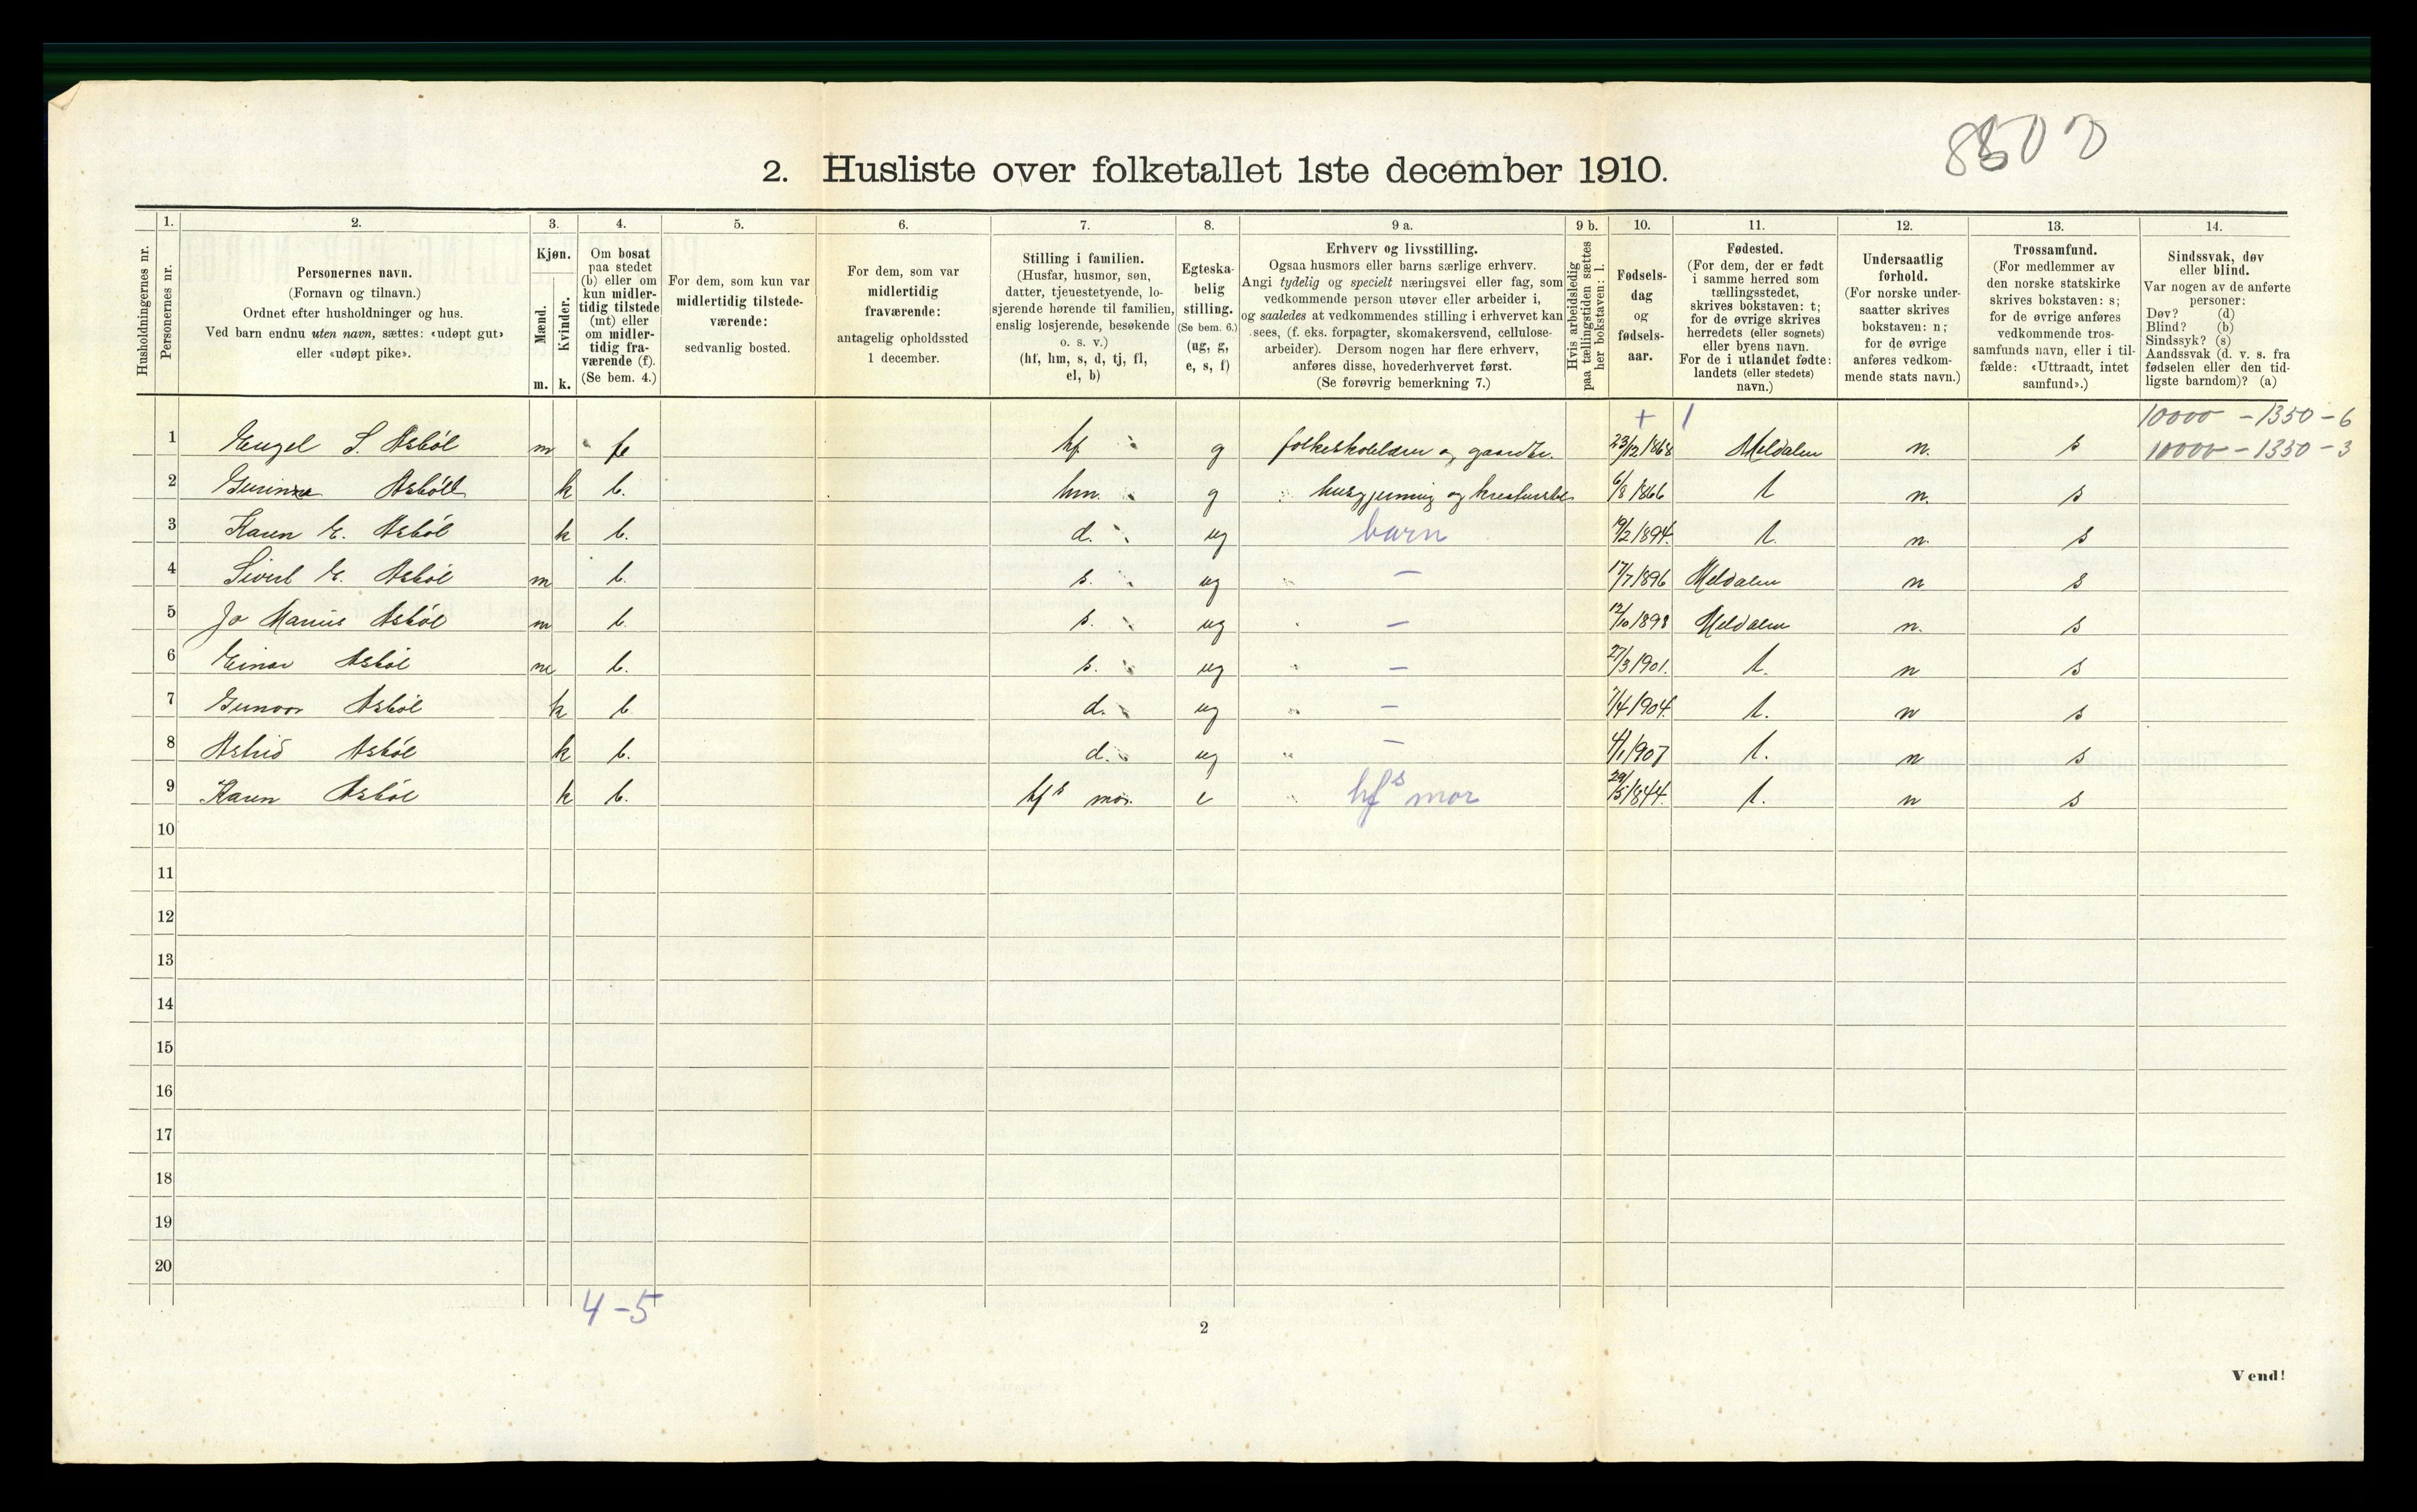 8500
2. Husliste over folketallet 1ste december 1910.
Husholdningernes nr.
1.
Personernes nr.
2.
Personernes navn.
(Fornavn og tilnavn.)
Ordnet efter husholdninger og hus.
Ved barn endnu uten navn, sættes: «udøpt gut»
eller «udøpt pike».
3.
Kjøn.
Mænd.
Kvinder.
m. k.
4.
Om bosat
paa stedet
(b) eller om
kun midler-
tidig tilstede
(mt) eller
om midler-
tidig fra-
værende (f).
(Se bem. 4.)
5.
For dem, som kun var
midlertidig tilstede-
værende:
sedvanlig bosted.
6.
For dem, som var
midlertidig
fraværende:
antagelig opholdssted
1 december.
7.
Stilling i familien.
(Husfar, husmor, søn,
datter, tjenestetyende, lo-
sjerende hørende til familien,
enslig losjerende, besøkende
o. s. v.)
(hf, hm, s, d, tj, fl,
el, b)
8.
Egteska-
belig
stilling.
(Se bem. 6.)
(ug, g,
e, s, f)
9 a.
Erhverv og livsstilling.
Ogsaa husmors eller barns særlige erhverv.
Angi tydelig og specielt næringsvei eller fag, som
vedkommende person utøver eller arbeider i,
og saaledes at vedkommendes stilling i erhvervet kan
sees, (f. eks. forpagter, skomakersvend, cellulose-
arbeider). Dersom nogen har flere erhverv,
anføres disse, hovederhvervet først.
(Se forøvrig bemerkning 7.)
9 b.
Hvis arbeidsledig
paa tællingstiden sættes
her bokstaven: l.
10.
Fødsels-
dag
og
fødsels-
aar.
11.
Fødested.
(For dem, der er født
i samme herred som
tællingsstedet,
skrives bokstaven: t;
for de øvrige skrives
herredets (eller sognets)
eller byens navn.
For de i utlandet fødte:
landets (eller stedets)
navn.)
12.
Undersaatlig
forhold.
(For norske under-
saatter skrives
bokstaven: n;
for de øvrige
anføres vedkom-
mende stats navn.)
13.
Trossamfund.
(For medlemmer av
den norske statskirke
skrives bokstaven: s;
for de øvrige anføres
vedkommende tros-
samfunds navn, eller i til-
fælde: «Uttraadt, intet
samfund».)
14.
Sindssvak, døv
eller blind.
Var nogen av de anførte
personer:
Døv? (d)
Blind? (b)
Sindssyk? (s)
Aandssvak (d. v. s. fra
fødselen eller den tid-
ligste barndom)? (a)
+ 1 10000 - 1350 - 6
1 Engel S. Asbøl m b hf g folkeskolelærer og gaardbr. 23/12 1868 Meldalen n. s 10000 - 1350 - 3
2 Asbøll k b. hm. g husgjerning og kreaturstel 6/8 1866 t n. s
3 Karen E. Asbøl k b. d. ug barn 19/2 1894. t. n. s
4 Sivert E. Asbøl m b. s. ug — 17/7 1896 Meldalen n s
5 Jo Marius Asbøl m b. s. ug — 12/10 1898 Meldalen n. s
6 Einar Asbøl m b. s. ug — 27/3 1901. t. n s
7 Gunvor Asbøl k b d. ug — 7/4 1904. t. n s
8 Astrid Asbøl k b. d. ug — 4/1 1907 t. n s
9 Karen Asbøl k b. hfs mor. e hfs mor 29/5 1844. t. n s
10
11
12
13
14
15
16
17
18
19
20
4 - 5
2
Vend!